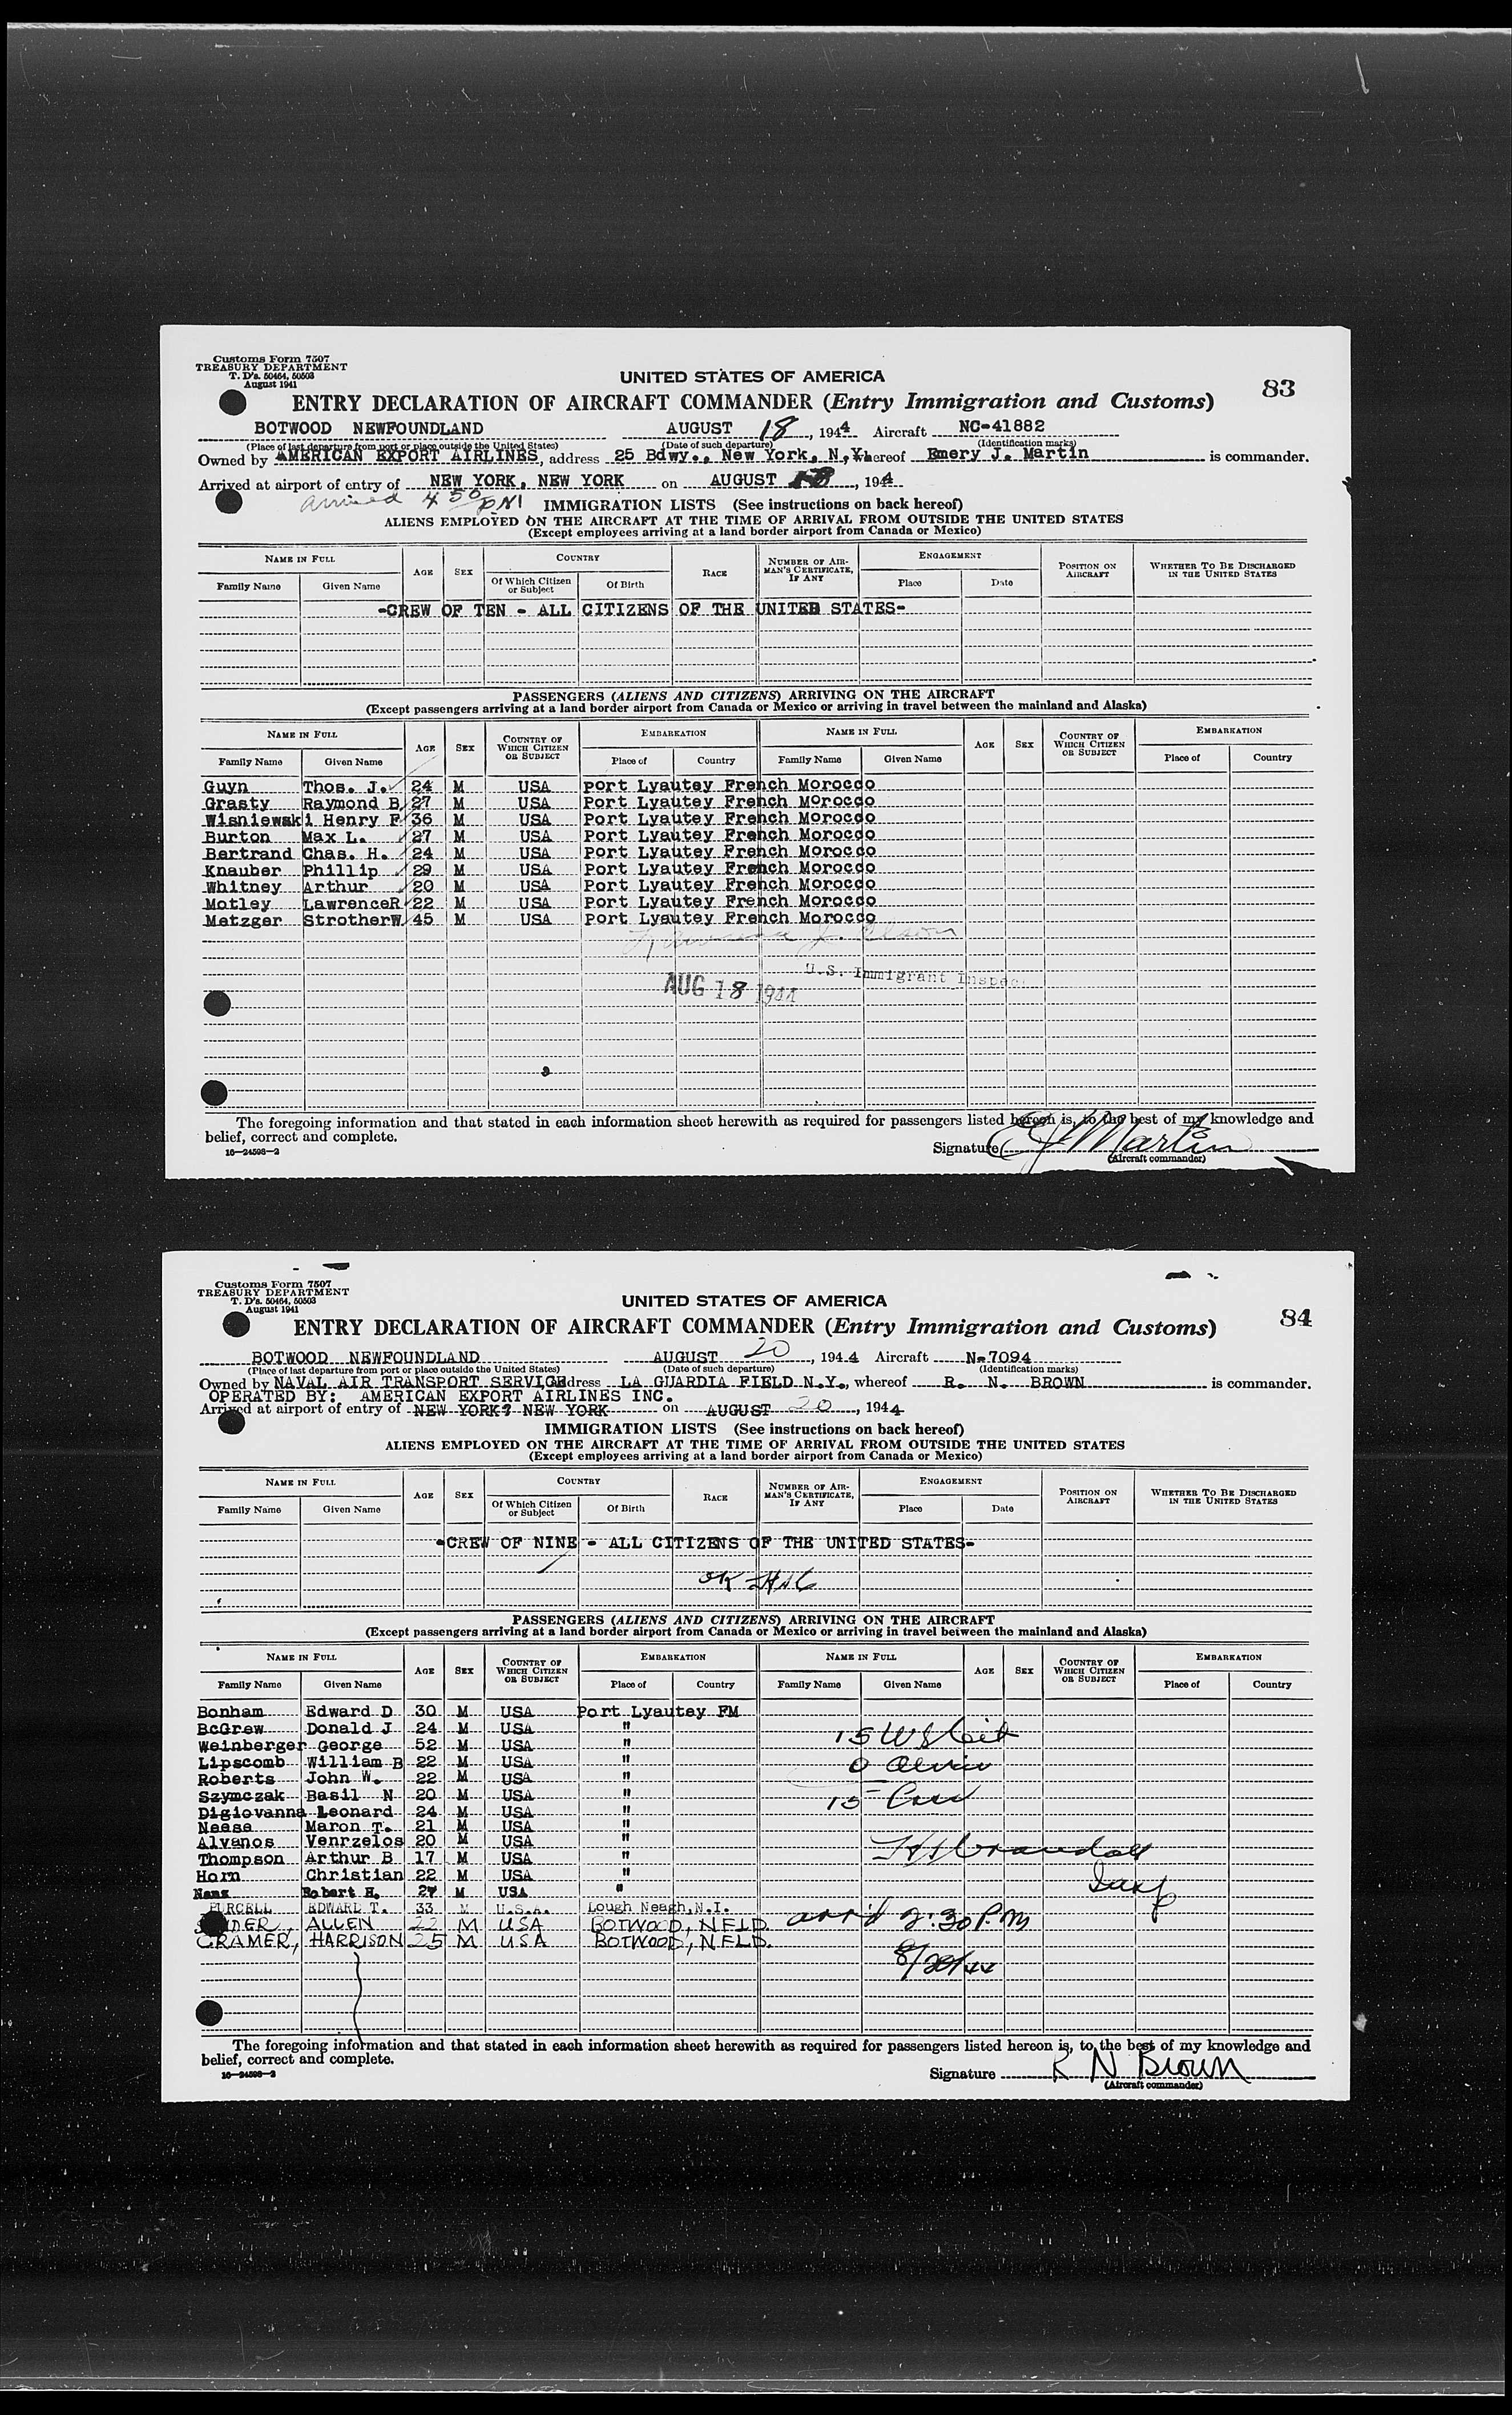 Customs Form 7507
TREASURY DEPARTMENT
T. D's. 50464, 50503
August 1941
UNITED STATES OF AMERICA
83
ENTRY DECLARATION OF AIRCRAFT COMMANDER (Entry Immigration and Customs)
BOTWOOD NEWFOUNDLAND AUGUST 18, 1944 Aircraft NC-41882
(Place of last departure from port or place outside the United States) (Date of such departure) (Identification marks)
Owned by AMERICAN EXPORT AIRLINES, address 25 Bdwy., New York, N.Y. whereof Emery J. Martin is commander.
Arrived at airport of entry of NEW YORK, NEW YORK on AUGUST 18, 1944
arrived 4 50 PM
IMMIGRATION LISTS (See instructions on back hereof)
ALIENS EMPLOYED ON THE AIRCRAFT AT THE TIME OF ARRIVAL FROM OUTSIDE THE UNITED STATES
(Except employees arriving at a land border airport from Canada or Mexico)
NAME IN FULL AGE SEX COUNTRY RACE NUMBER OF AIRMAN'S CERTIFICATE, IF ANY ENGAGEMENT POSITION ON AIRCRAFT WHETHER TO BE DISCHARGED IN THE UNITED STATES
Family Name Given Name Of Which Citizen or Subject Of Birth Place Date
-CREW OF TEN - ALL CITIZENS OF THE UNITED STATES-
PASSENGERS (ALIENS AND CITIZENS) ARRIVING ON THE AIRCRAFT
(Except passengers arriving at a land border airport from Canada or Mexico or arriving in travel between the mainland and Alaska)
NAME IN FULL AGE SEX COUNTRY OF WHICH CITIZEN OR SUBJECT EMBARKATION NAME IN FULL AGE SEX COUNTRY OF WHICH CITIZEN OR SUBJECT EMBARKATION
Family Name Given Name Place of Country Family Name Given Name Place of Country
Guyn Thos. J. 24 M USA Port Lyautey French Morocco
Grasty Raymond B 27 M USA Port Lyautey French Morocco
Wisniewski Henry F 36 M USA Port Lyautey French Morocco
Burton Max L. 27 M USA Port Lyautey French Morocco
Bertrand Chas. H. 24 M USA Port Lyautey French Morocco
Knauber Phillip 29 M USA Port Lyautey French Morocco
Whitney Arthur 20 M USA Port Lyautey French Morocco
Motley LawrenceR 22 M USA Port Lyautey French Morocco
Metzger StrotherW 45 M USA Port Lyautey French Morocco
U.S. Immigrant Inspec
AUG 18 1944
The foregoing information and that stated in each information sheet herewith as required for passengers listed hereon is, to the best of my knowledge and
belief, correct and complete.
Signature E J Martin
16—24598-2
(Aircraft commander)
Customs Form 7507
TREASURY DEPARTMENT
T. D's. 50464, 50503
August 1941
UNITED STATES OF AMERICA
84
ENTRY DECLARATION OF AIRCRAFT COMMANDER (Entry Immigration and Customs)
BOTWOOD NEWFOUNDLAND AUGUST 20, 1944 Aircraft N-7094
(Place of last departure from port or place outside the United States) (Date of such departure) (Identification marks)
Owned by NAVAL AIR TRANSPORT SERVICE address LA GUARDIA FIELD N.Y., whereof R. N. BROWN is commander.
OPERATED BY: AMERICAN EXPORT AIRLINES INC.
Arrived at airport of entry of NEW YORK? NEW YORK on AUGUST 20, 1944
IMMIGRATION LISTS (See instructions on back hereof)
ALIENS EMPLOYED ON THE AIRCRAFT AT THE TIME OF ARRIVAL FROM OUTSIDE THE UNITED STATES
(Except employees arriving at a land border airport from Canada or Mexico)
NAME IN FULL AGE SEX COUNTRY RACE NUMBER OF AIRMAN'S CERTIFICATE, IF ANY ENGAGEMENT POSITION ON AIRCRAFT WHETHER TO BE DISCHARGED IN THE UNITED STATES
Family Name Given Name Of Which Citizen or Subject Of Birth Place Date
-CREW OF NINE - ALL CITIZENS OF THE UNITED STATES-
OK
PASSENGERS (ALIENS AND CITIZENS) ARRIVING ON THE AIRCRAFT
(Except passengers arriving at a land border airport from Canada or Mexico or arriving in travel between the mainland and Alaska)
NAME IN FULL AGE SEX COUNTRY OF WHICH CITIZEN OR SUBJECT EMBARKATION NAME IN FULL AGE SEX COUNTRY OF WHICH CITIZEN OR SUBJECT EMBARKATION
Family Name Given Name Place of Country Family Name Given Name Place of Country
Bonham Edward D 30 M USA Port Lyautey FM
BcGrew Donald J 24 M USA "
Weinberger George 52 M USA " 15 US Cit
Lipscomb William B 22 M USA " 0 Alien
Roberts John W. 22 M USA "
Szymczak Basil N 20 M USA " 15
Digiovanna Leonard 24 M USA "
Neese Maron T. 21 M USA "
Alvanos Venrzelos 20 M USA "
Thompson Arthur B 17 M USA "
Horn Christian 22 M USA "
Robert H. 27 M USA " Insp
PURCELL EDWARD T. 33 M U.S.A. Lough Neagh, N.I.
ALLEN 22 M USA BOTWOOD, NFLD. arr'd 2:30 P.M
CRAMER, HARRISON 25 M USA BOTWOOD, NFLD.
8/20/44
The foregoing information and that stated in each information sheet herewith as required for passengers listed hereon is, to the best of my knowledge and
belief, correct and complete.
Signature R N Brown
16—24598-2
(Aircraft commander)